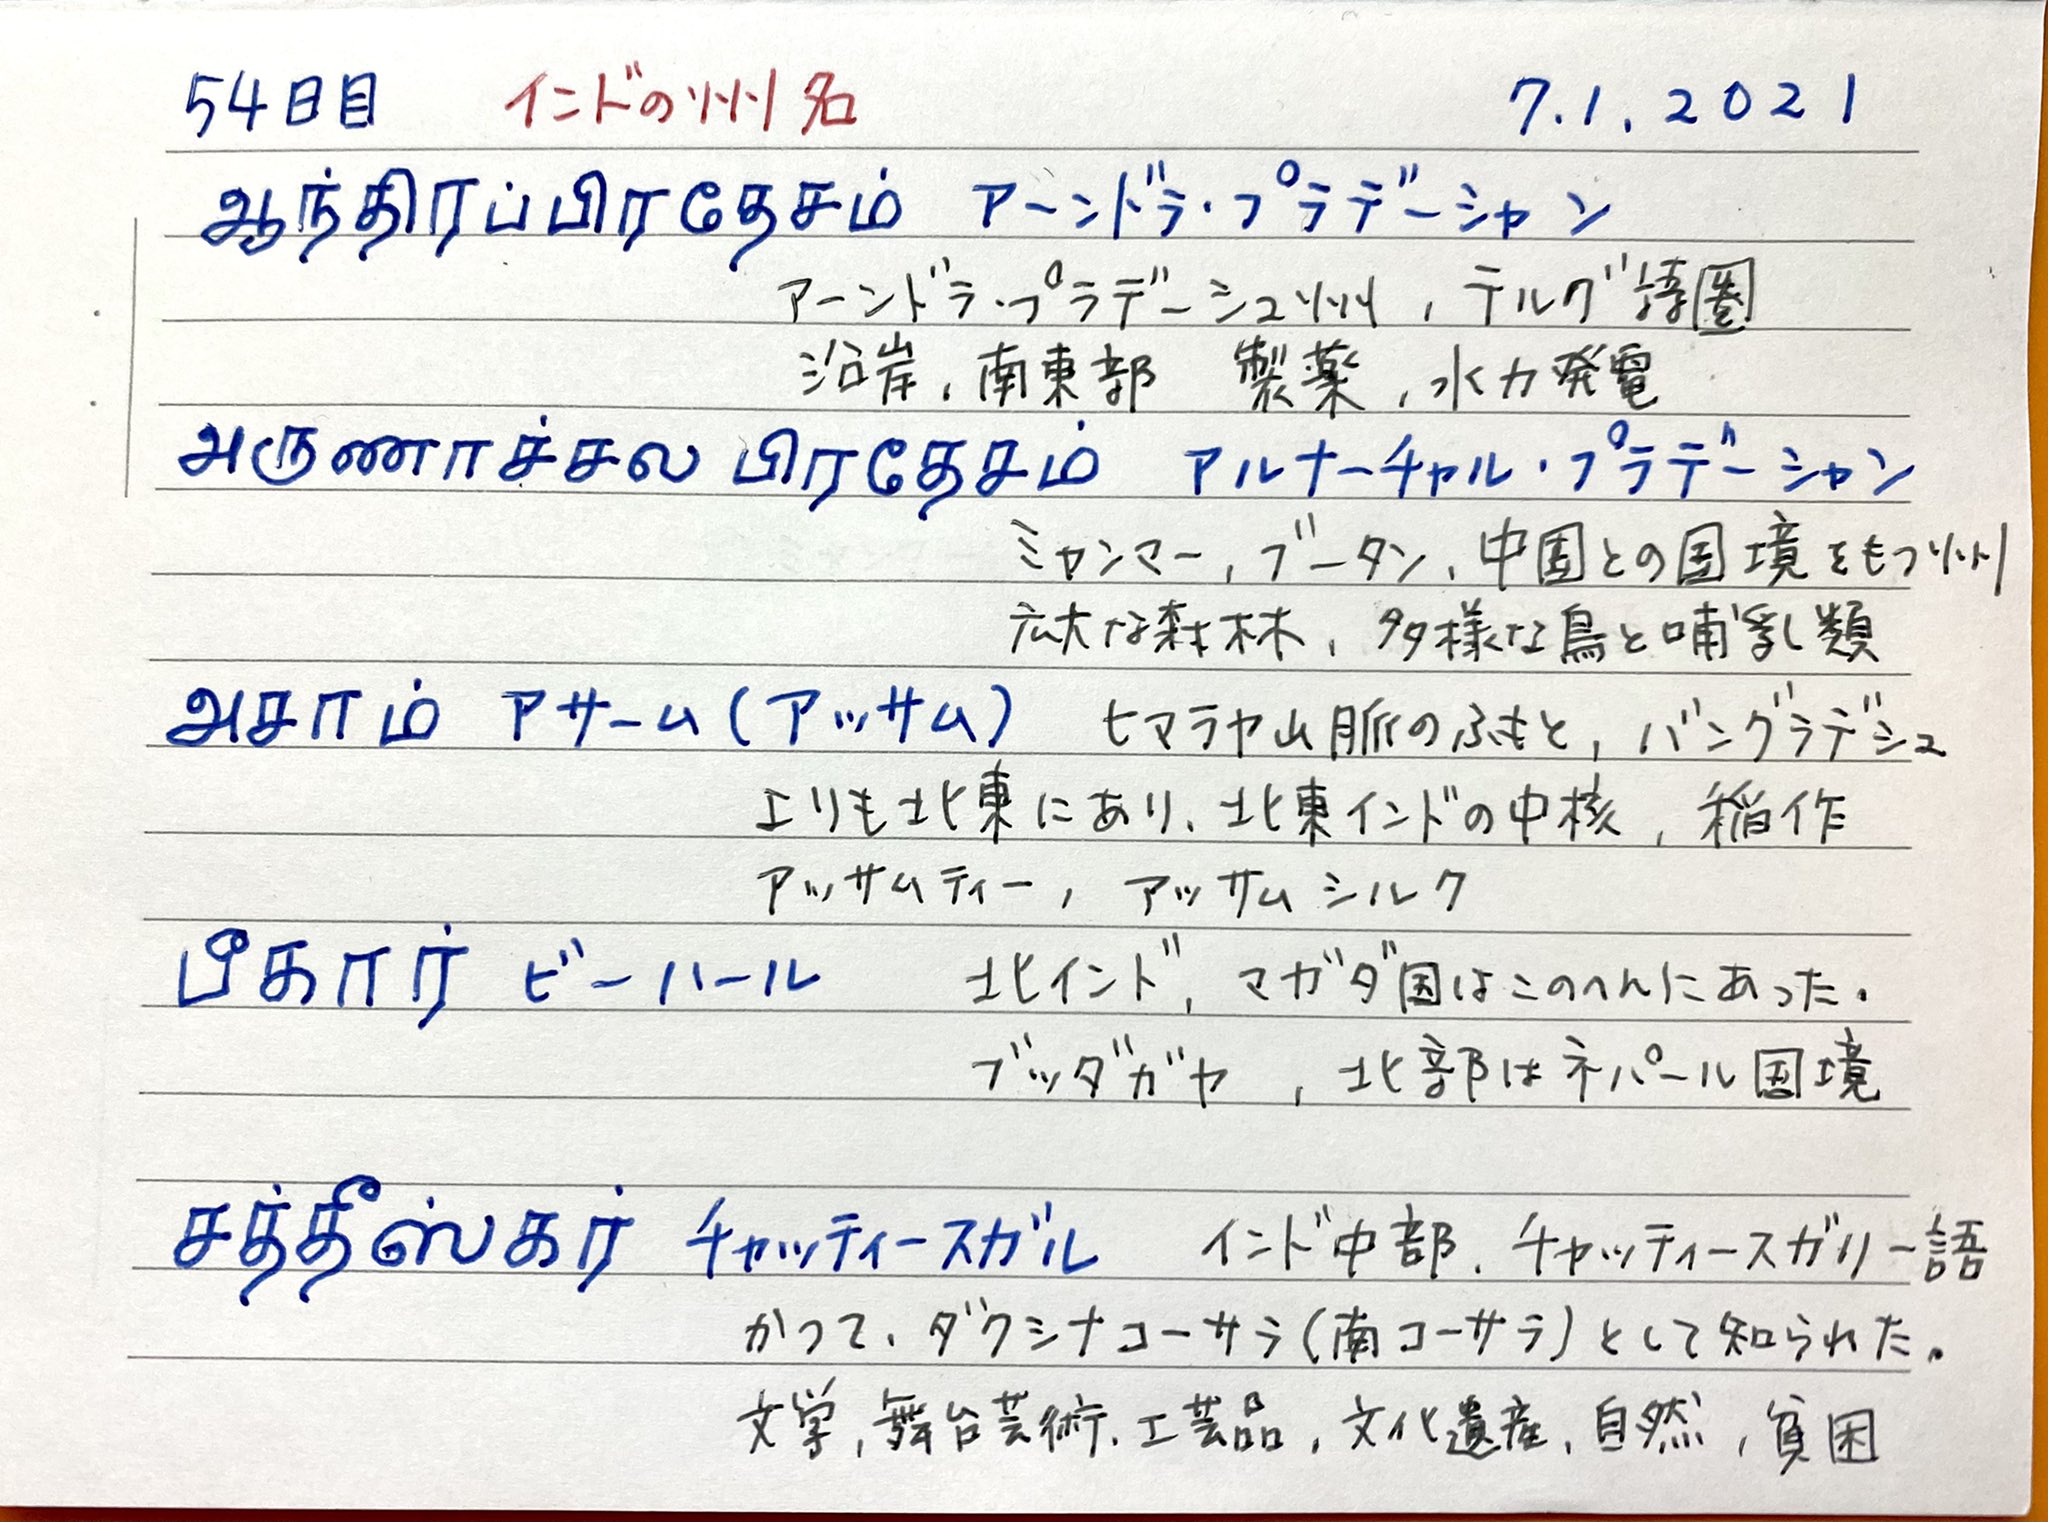 54日目 インドの州名 7.1.2021
ஆந்திரப்பிரதேசம் アーンドラ・プラデーシャン
アーンドラ・プラデーシュ州, テルグ語圏
沿岸, 南東部 製薬, 水力発電
அருணாச்சல பிரதேசம் アルナーチャル・プラデーシャン
ミャンマー, ブータン, 中国との国境をもつ州
広大な森林, 多様な鳥と哺乳類
அசாம் アサーム(アッサム) ヒマラヤ山脈のふもと, バングラデシュ
よりも北東にあり、北東インドの中核, 稲作
アッサムティー, アッサムシルク
பீகார் ビーハール 北インド, マガダ国はこのへんにあった。
ブッダガヤ, 北部はネパール国境
சத்தீஸ்கர் チャッティースガル インド中部, チャッティースガリー語
かつて、ダクシナコーサラ(南コーサラ)として知られた。
文学, 舞台芸術, 工芸品, 文化遺産, 自然, 貧困